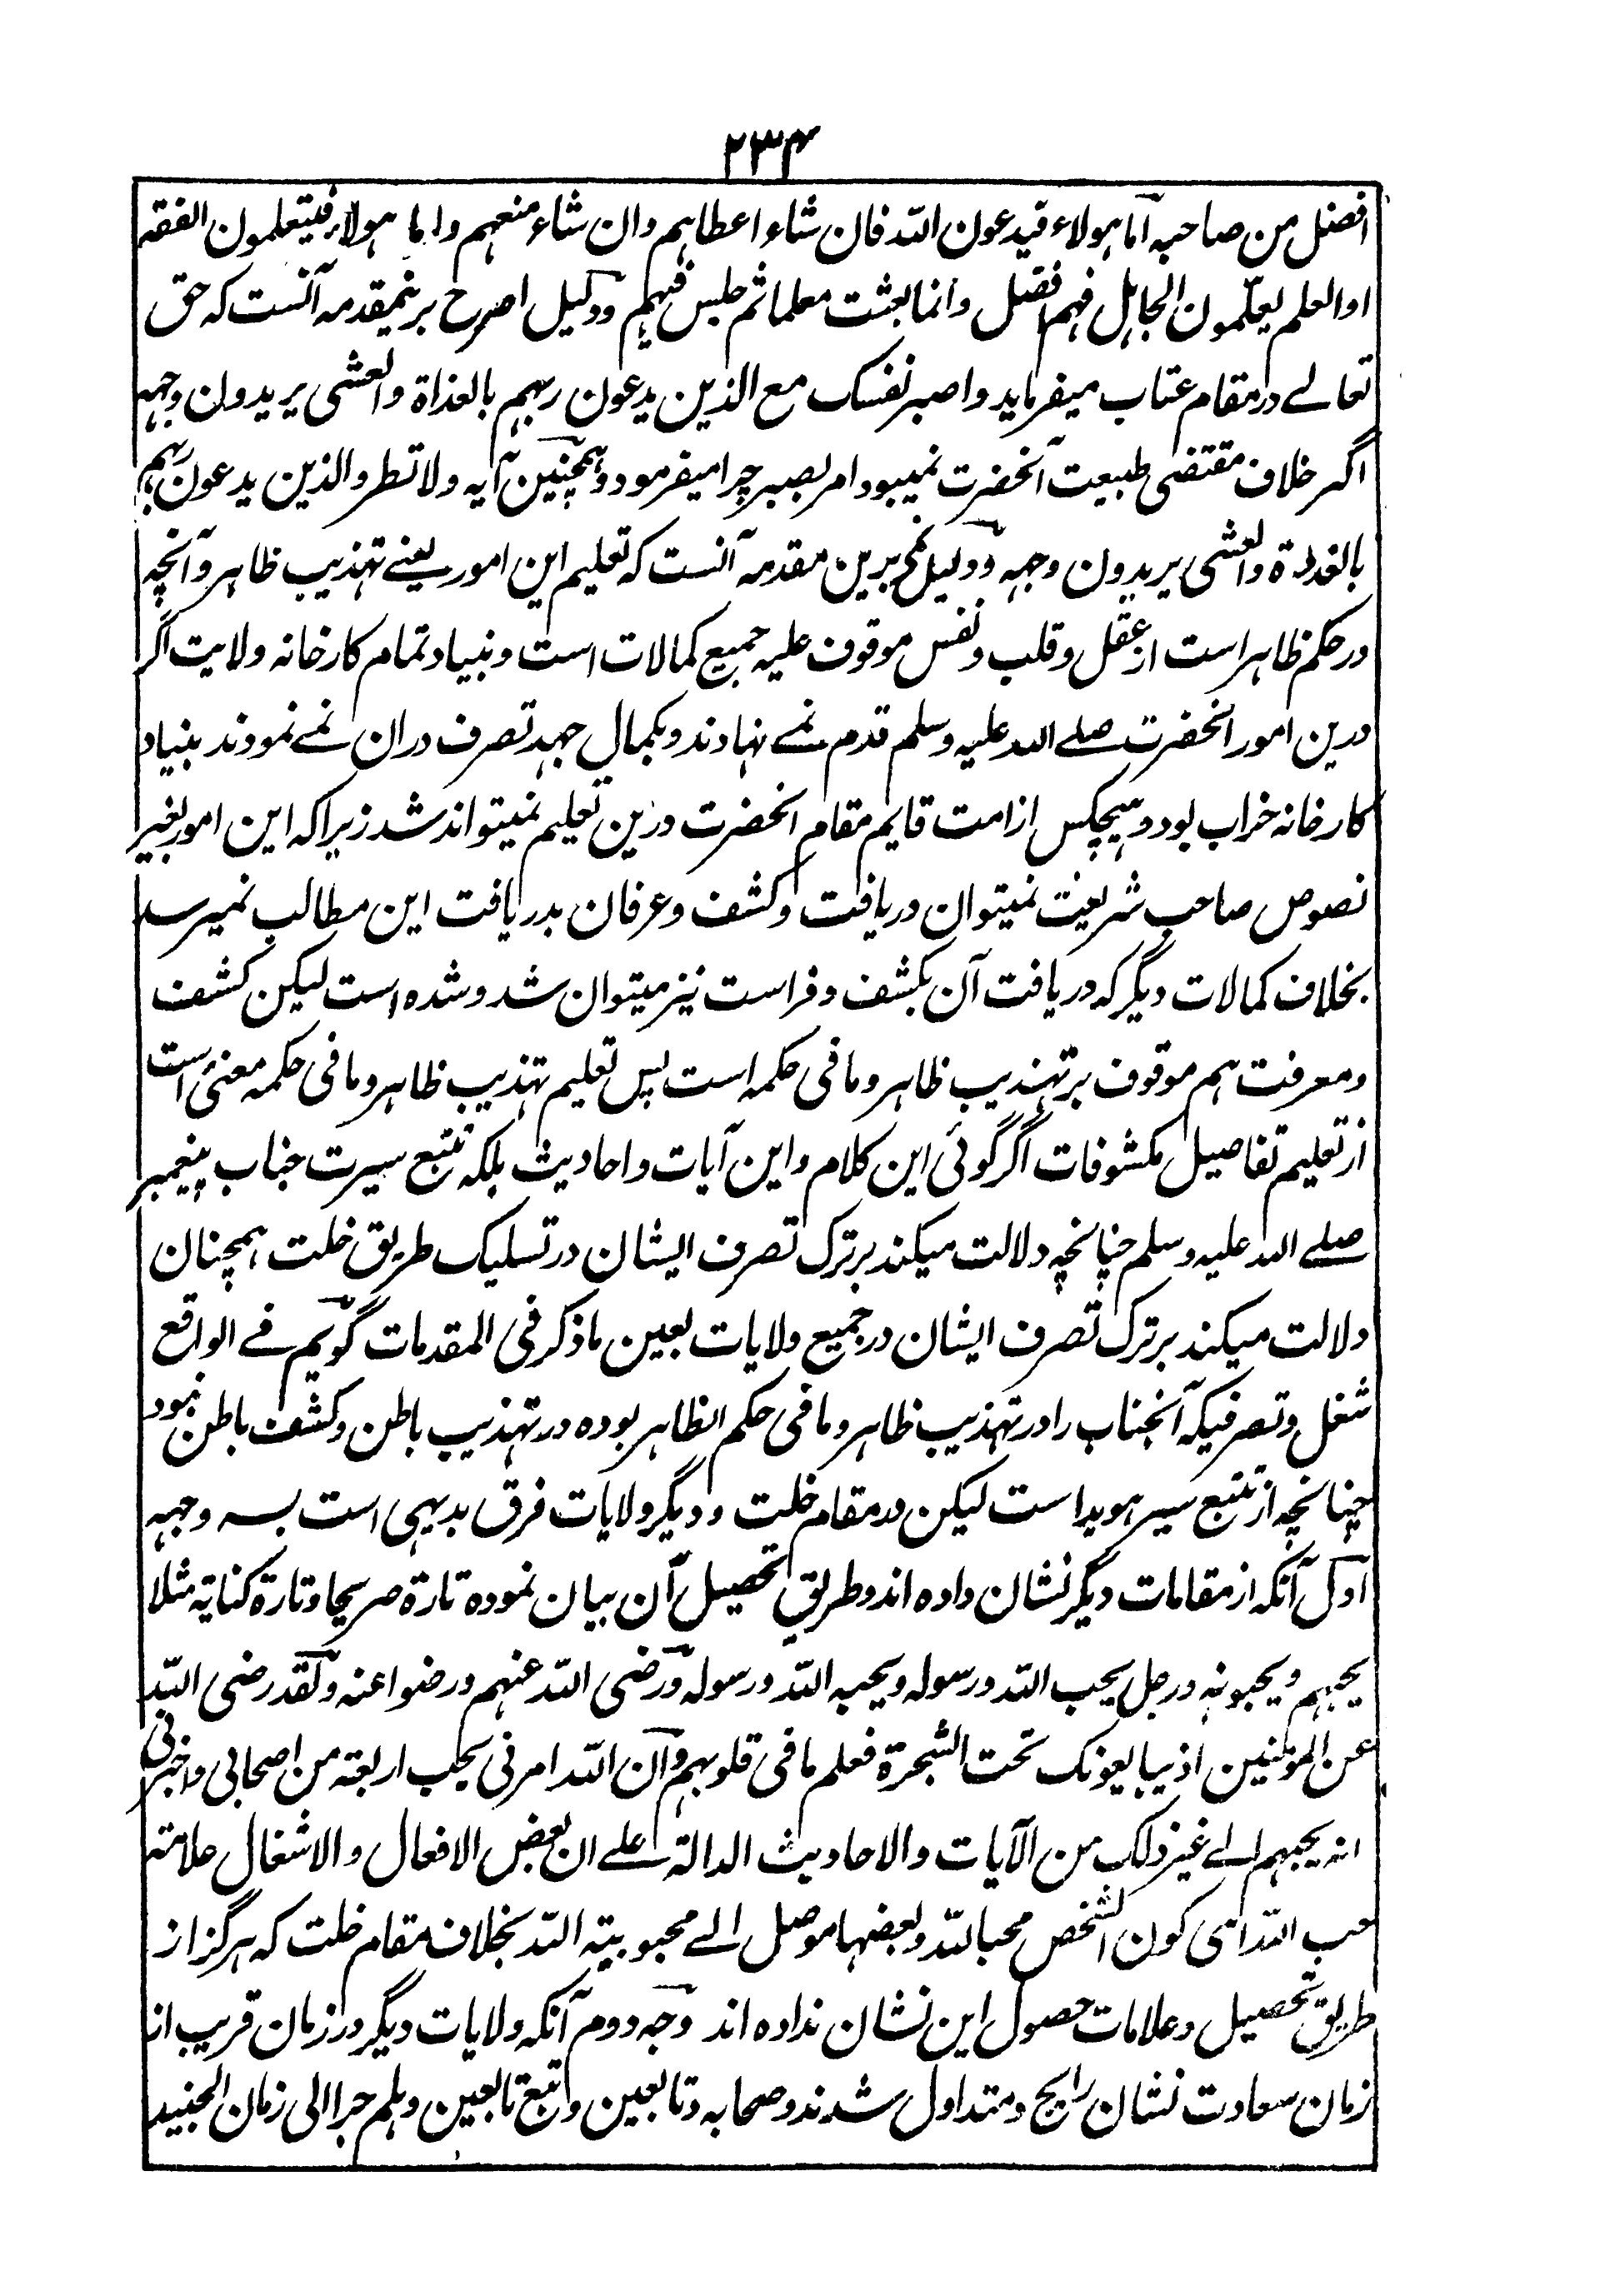 ۲۳۴
افضل من صاحبه اما هولاء فیدعون الله فان شاء اعطاهم وان شاء منعهم واما هولاء فیتعلمون الفقه
او العلم یعلّمون الجاهل فهم افضل وانما بعثت معلما ثم جلس فیهم ودلیل اصرح برینمقدمه آنست که حق
تعالے درمقام عتاب میفرماید واصبر نفسک مع الذین یدعون ربهم بالغداة والعشی یریدون وجهه
اگر خلاف مقتضی طبیعت آنحضرت نمیبود امر بصبر چرا میفرمود وهمچنین آیه ولا تطرد الذین یدعون ربهم
بالغداة والعشی یریدون وجهه ودلیل برین مقدمه آنست که تعلیم این امور یعنے تهذیب ظاهر وآنچه
در حکم ظاهر است از عقل وقلب ونفس موقوف علیه جمیع کمالات است وبنیاد تمام کارخانه ولایت اگر
درین امور آنحضرت صلے الله علیه وسلم قدم نمے نهادند وبکمال جهد تصرف دران نمے نمودند بنیاد
کارخانه خراب بود وهیچکس از امت قایم مقام آنحضرت درین تعلیم نمیتواند شد زیراکه این امور بغیر
نصوص صاحب شریعت نمیتوان دریافت وکشف وعرفان بدریافت این مطالب نمیرسد
بخلاف کمالات دیگر که دریافت آن بکشف وفراست نیز میتوان شد وشده است لیکن کشف
ومعرفت هم موقوف بر تهذیب ظاهر وما فی حکمه است پس تعلیم تهذیب ظاهر وما فی حکمه مغنی است
از تعلیم تفاصیل مکشوفات اگر گوئی این کلام واین آیات واحادیث بلکه تتبع سیرت جناب پیغمبر
صلے الله علیه وسلم چنانچه دلالت میکند بر ترک تصرف ایشان در تسلیک طریق خلت همچنان
دلالت میکند بر ترک تصرف ایشان در جمیع ولایات بعین ما ذکر فی المقدمات گویم فے الواقع
شغل وتصرفیکه آنجناب را در تهذیب ظاهر وما فی حکم الظاهر بوده در تهذیب باطن وکشف باطن نبود
چنانچه از تتبع سیر هویدا است لیکن در مقام خلت ودیگر ولایات فرق بدیهی است بسه وجهه
اول آنکه از مقامات دیگر نشان داده اند وطریق تحصیل آن بیان نموده تارة صریحا وتارة کنایة مثلا
یحبهم ویحبونه ورجل یحب الله ورسوله ویحبه الله ورسوله ورضی الله عنهم ورضوا عنه ولقد رضی الله
عن المومنین اذ یبایعونک تحت الشجرة فعلم ما فی قلوبهم وان الله امرنی بحب اربعة من اصحابی واخبرنی
انه یحبهم الے غیر ذلک من الآیات والاحادیث الدالة علے ان بعض الافعال والاشغال علامته
حب الله ای کون الشخص محبا لله وبعضها موصل الے محبوبیة الله بخلاف مقام خلت که هرگز از
طریق تحصیل وعلامات حصول این نشان نداده اند وجه دوم آنکه ولایات دیگر در زمان قریب از
زمان سعادت نشان رایج ومتداول شدند وصحابه وتابعین واتبع تابعین وهلم جرا الی زمان الجنید